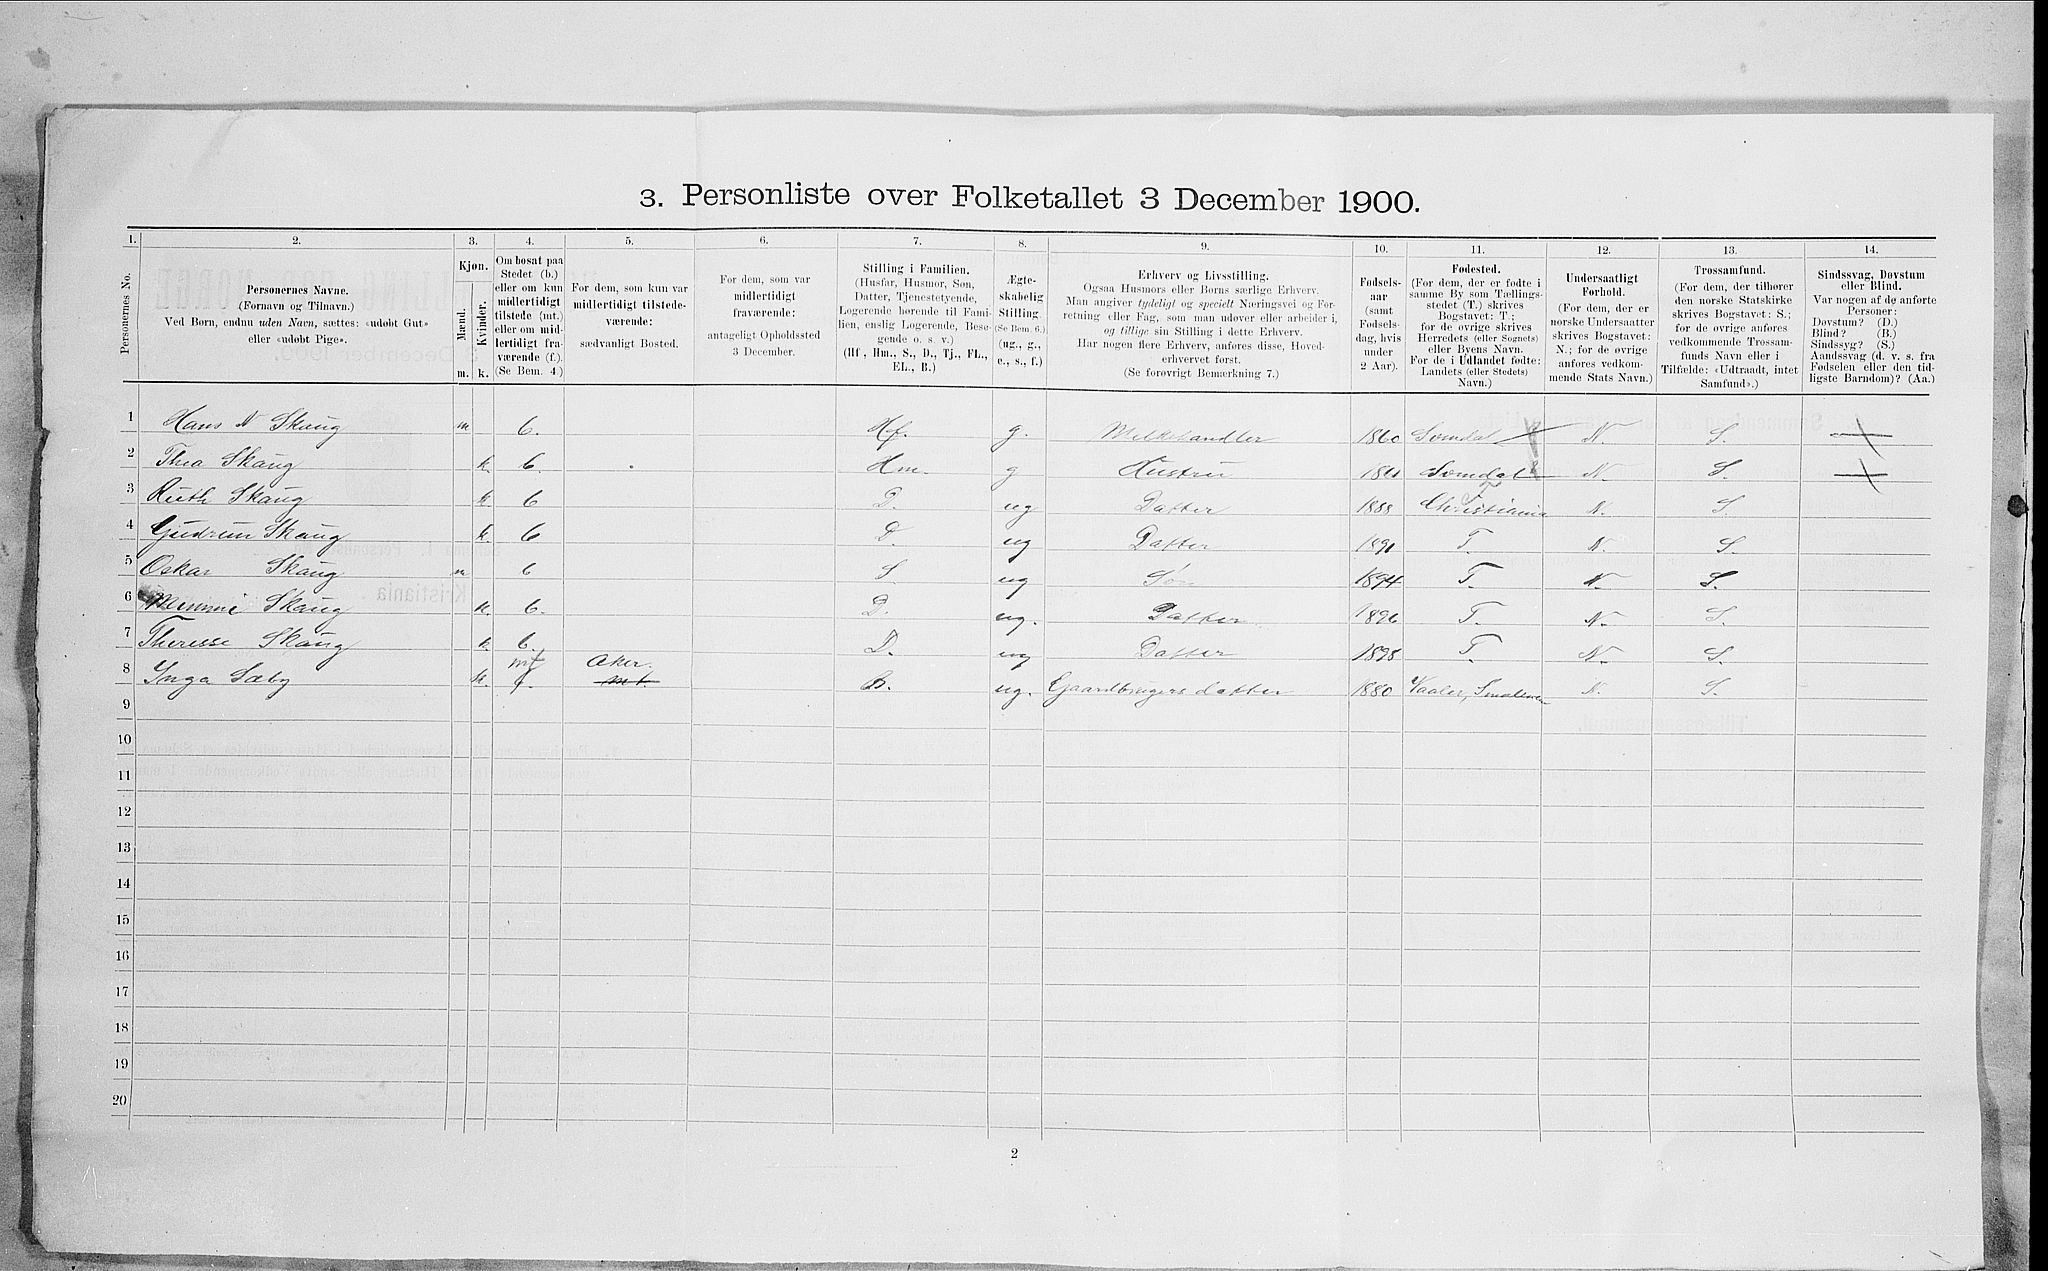 3. Personliste over Folketallet 3 December 1900.
1. 2. 3. 4. 5. 6. 7. 8. 9. 10. 11. 12. 13. 14.
Personernes No.
Personernes Navne.
(Fornavn og Tilnavn.)
Ved Børn, endnu uden Navn, sættes: «udøbt Gut»
eller «udøbt Pige».
Kjøn.
Mænd.
Kvinder.
m. k.
Om bosat paa
Stedet (b.)
eller om kun
midlertidigt
tilstede (mt.)
eller om mid-
lertidigt fra-
værende (f.).
(Se Bem. 4.)
For dem, som kun var
midlertidigt tilstede-
værende:
sædvanligt Bosted.
For dem, som var
midlertidigt
fraværende:
antageligt Opholdssted
3 December.
Stilling i Familien.
(Husfar, Husmor, Søn,
Datter, Tjenestetyende,
Logerende hørende til Fami-
lien, enslig Logerende, Besø-
gende o. s. v.)
(Hf., Hm., S., D., Tj., FL.,
EL., B.)
Ægte-
skabelig
Stilling.
(Se Bem. 6.)
(ug., g.,
e., s., f.)
Erhverv og Livsstilling.
Ogsaa Husmors eller Børns særlige Erhverv.
Man angiver tydeligt og specielt Næringsvei og For-
retning eller Fag, som man udøver eller arbeider i,
og tillige sin Stilling i dette Erhverv.
Har nogen flere Erhverv, anføres disse, Hoved-
erhvervet først.
(Se forøvrigt Bemærkning 7.)
Fødsels-
aar
(samt
Fødsels-
dag, hvis
under
2 Aar).
Fødested.
(For dem, der er fødte i
samme By som Tællings-
stedet (T.) skrives
Bogstavet: T.;
for de øvrige skrives
Herredets (eller Sognets)
eller Byens Navn.
For de i Udlandet fødte:
Landets (eller Stedets)
Navn.)
Undersaatligt
Forhold.
(For dem, der er
norske Undersaatter
skrives Bogstavet:
N.; for de øvrige
anføres vedkom-
mende Stats Navn.)
Trossamfund.
(For dem, der tilhører
den norske Statskirke
skrives Bogstavet: S.;
for de øvrige anføres
vedkommende Trossam-
funds Navn eller i
Tilfælde: «Udtraadt, intet
Samfund».)
Sindssvag, Døvstum
eller Blind.
Var nogen af de anførte
Personer:
Døvstum? (D.)
Blind? (B.)
Sindssyg? (S.)
Aandssvag (d. v. s. fra
Fødselen eller den tid-
ligste Barndom)? (Aa.)
1 Hans N Skaug m b. Hf. g. Melkehandler 1860 N. S.
2 Thea Skaug k. b Hm. g Hustru N. S.
3 Ruth Skaug k. b D. ug Datter 1888 Christiania T N. S.
4 Gudrun Skaug k. b D. ug Datter T. N. S.
5 Oskar Skaug m b S ug Søn 1894 T. N. S.
6 Mimmi Skaug k. b. D. ug. Datter 1896 T. N. S.
7 Theresse Skaug k b. D. ug Datter 1898 T. N. S.
8 Inga Sæby k. mt Aker. mt. B. ug. Gaardbrugers datter 1880 Vaaler, Smalenene N. S.
9
10
11
12
13
14
15
16
17
18
19
20
2